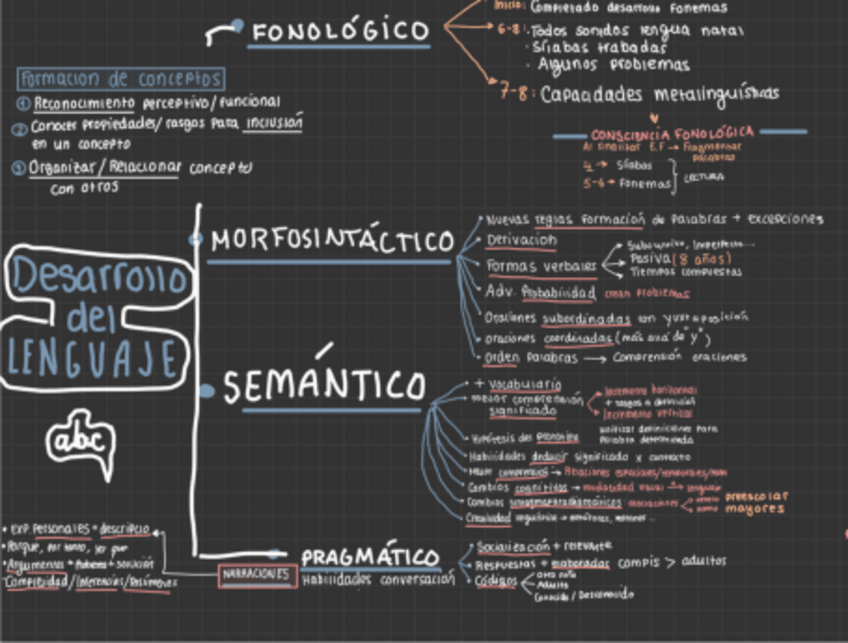 FONOLÓGICO
Inicio: Completado desarrollo fonemas
6-8: Todos sonidos lengua natal
· Sílabas trabadas
· Algunos problemas
7-8: Capacidades metalinguísticas
CONSCIENCIA FONOLÓGICA
Al finalizar E.F → Fragmentar palabras
4 → Sílabas
5-6 → Fonemas
LECTURA
Formación de conceptos
① Reconocimiento perceptivo/funcional
② Conocer propiedades/rasgos para inclusión
en un concepto
③ Organizar/Relacionar concepto
con otros
Desarrollo
del
LENGUAJE
abc
MORFOSINTÁCTICO
· Nuevas reglas formación de palabras + excepciones
· Derivación
· Formas verbales
Pasiva (8 años)
Tiempos compuestos
· Adv. Probabilidad crean problemas
· Oraciones subordinadas con yuxtaposición
· oraciones coordinadas (más allá de "y")
· Orden palabras → Comprensión oraciones
SEMÁNTICO
· + vocabulario
· mejor comprensión
significado
Incremento horizontal
Incremento vertical
unificar definiciones para
· Hipótesis des
· Habilidades deducir significado x contexto
· Mejor comprensión → Relaciones espaciales/temporales
· Cambios cognitivos →
· Cambios
preescolar
mayores
· Creatividad
PRAGMÁTICO
Habilidades conversación
· Socialización + relevante
· Respuestas + elaboradas compis > adultos
· Códigos
Adulto
Conocido / Desconocido
NARRACIONES
· Exp personales + descripción
· Porque, por tanto, ya que
· Argumentos
· Complejidad/Intenciones